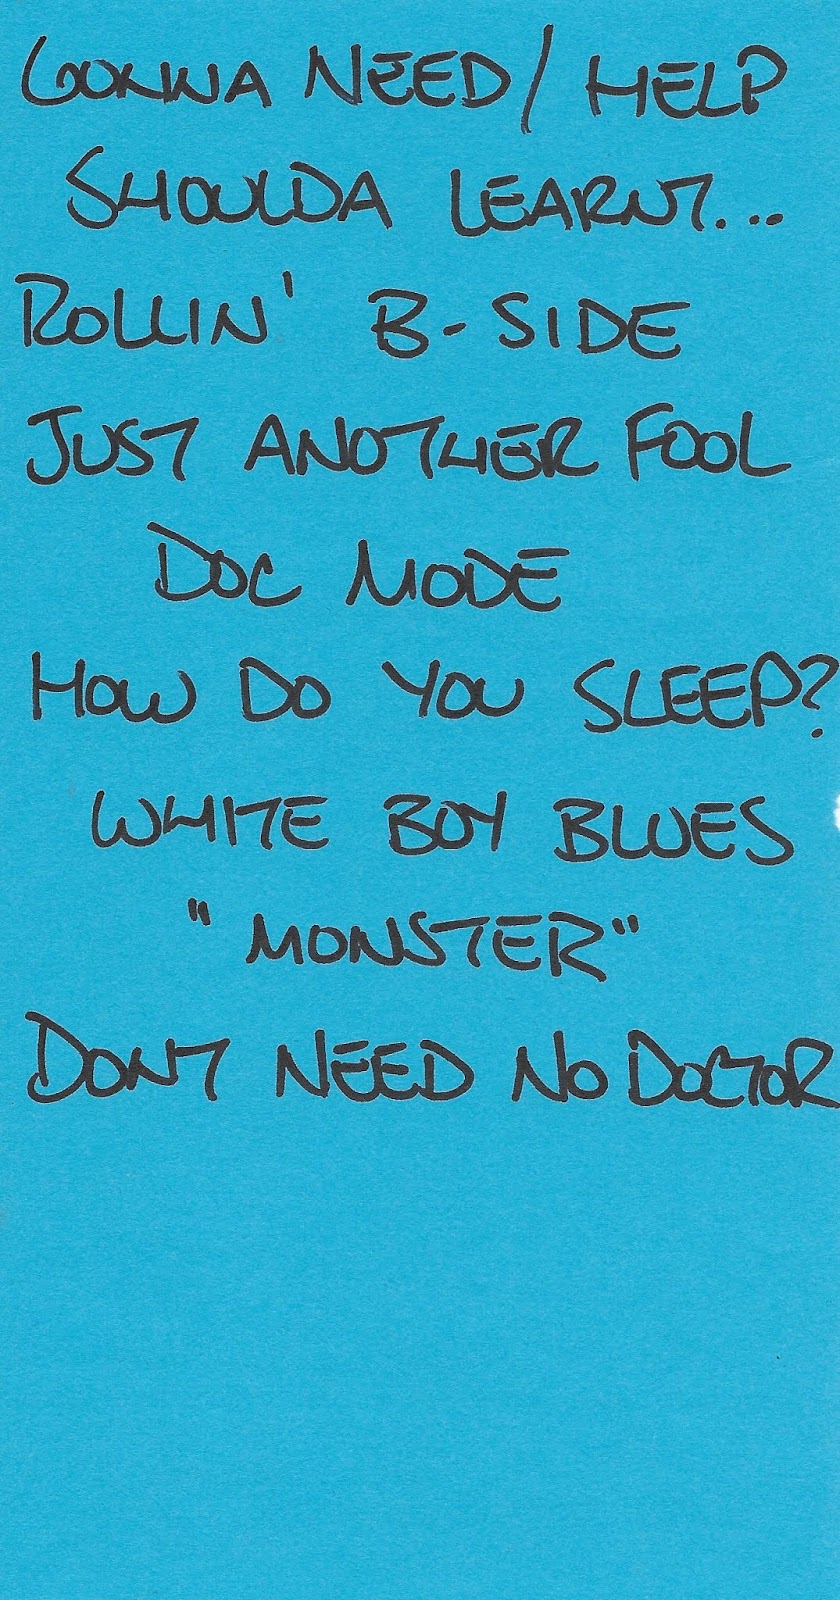 GONNA NEED/HELP
SHOULDA LEARNT...
ROLLIN' B-SIDE
JUST ANOTHER FOOL
DOC MODE
HOW DO YOU SLEEP?
WHITE BOY BLUES
"MONSTER"
DONT NEED NO DOCTOR